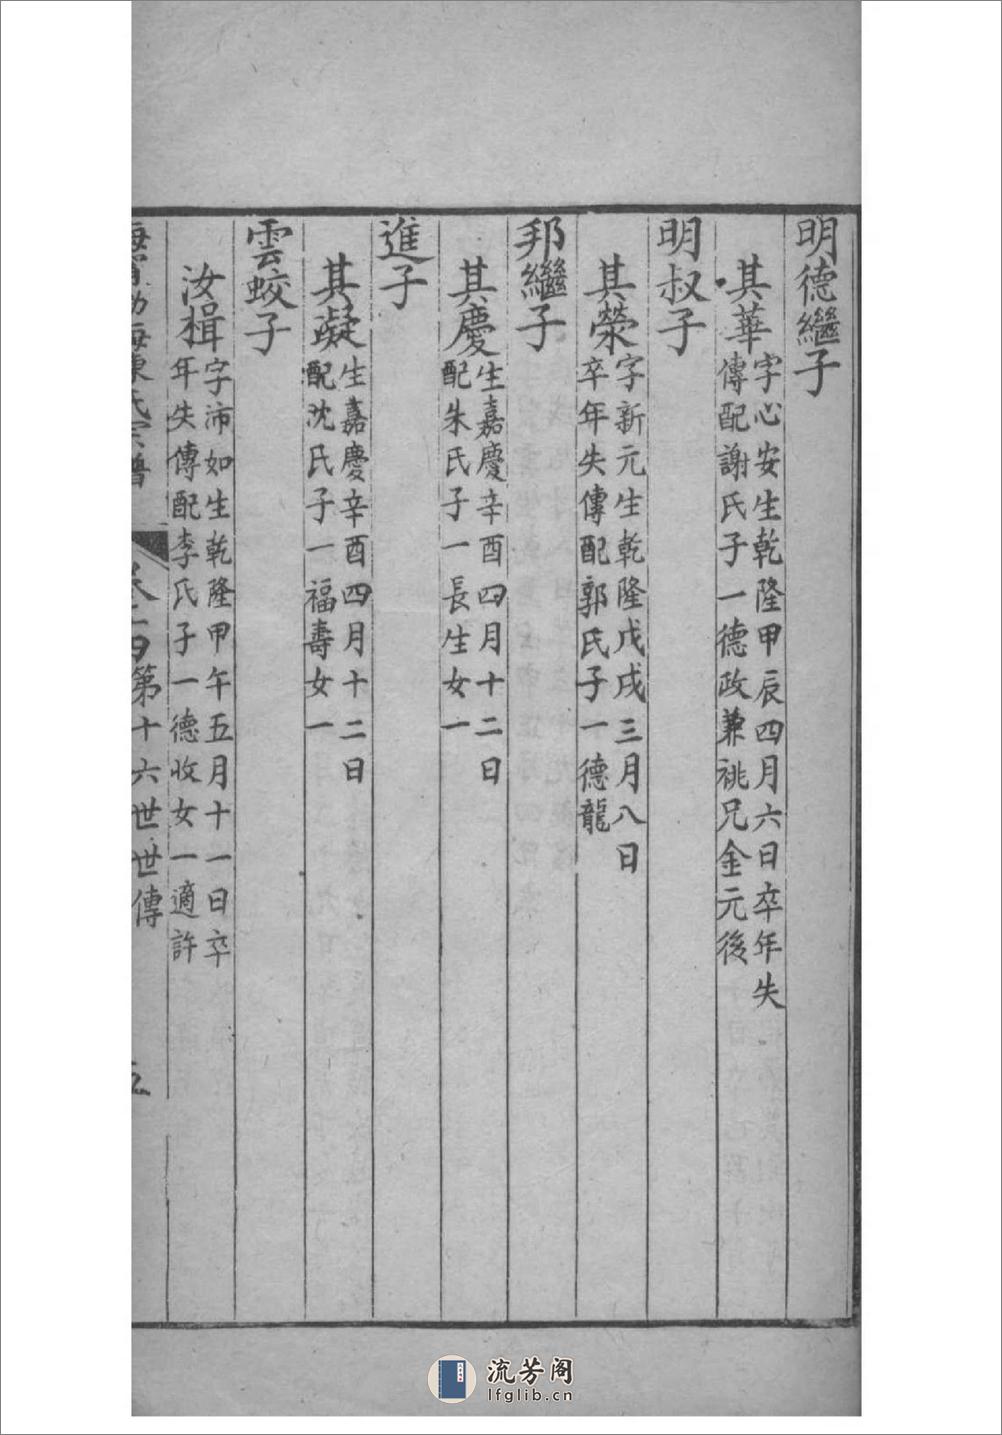 明德繼子
其華
字心安生乾隆甲辰四月六日卒年失
傳配謝氏子一德政兼祧兄金元後
明叔子
其榮
字新元生乾隆戊戌三月八日
卒年失傳配郭氏子一德龍
邦繼子
其慶
生嘉慶辛酉四月十二日
配朱氏子一長生女一
進子
其凝
生嘉慶辛酉四月十二日
配沈氏子一福壽女一
雲蛟子
汝楫
字沛如生乾隆甲午五月十一日卒
年失傳配李氏子一德收女一適許
氏宗譜
第十六世世傳
五
流芳阁
lfglib.cn